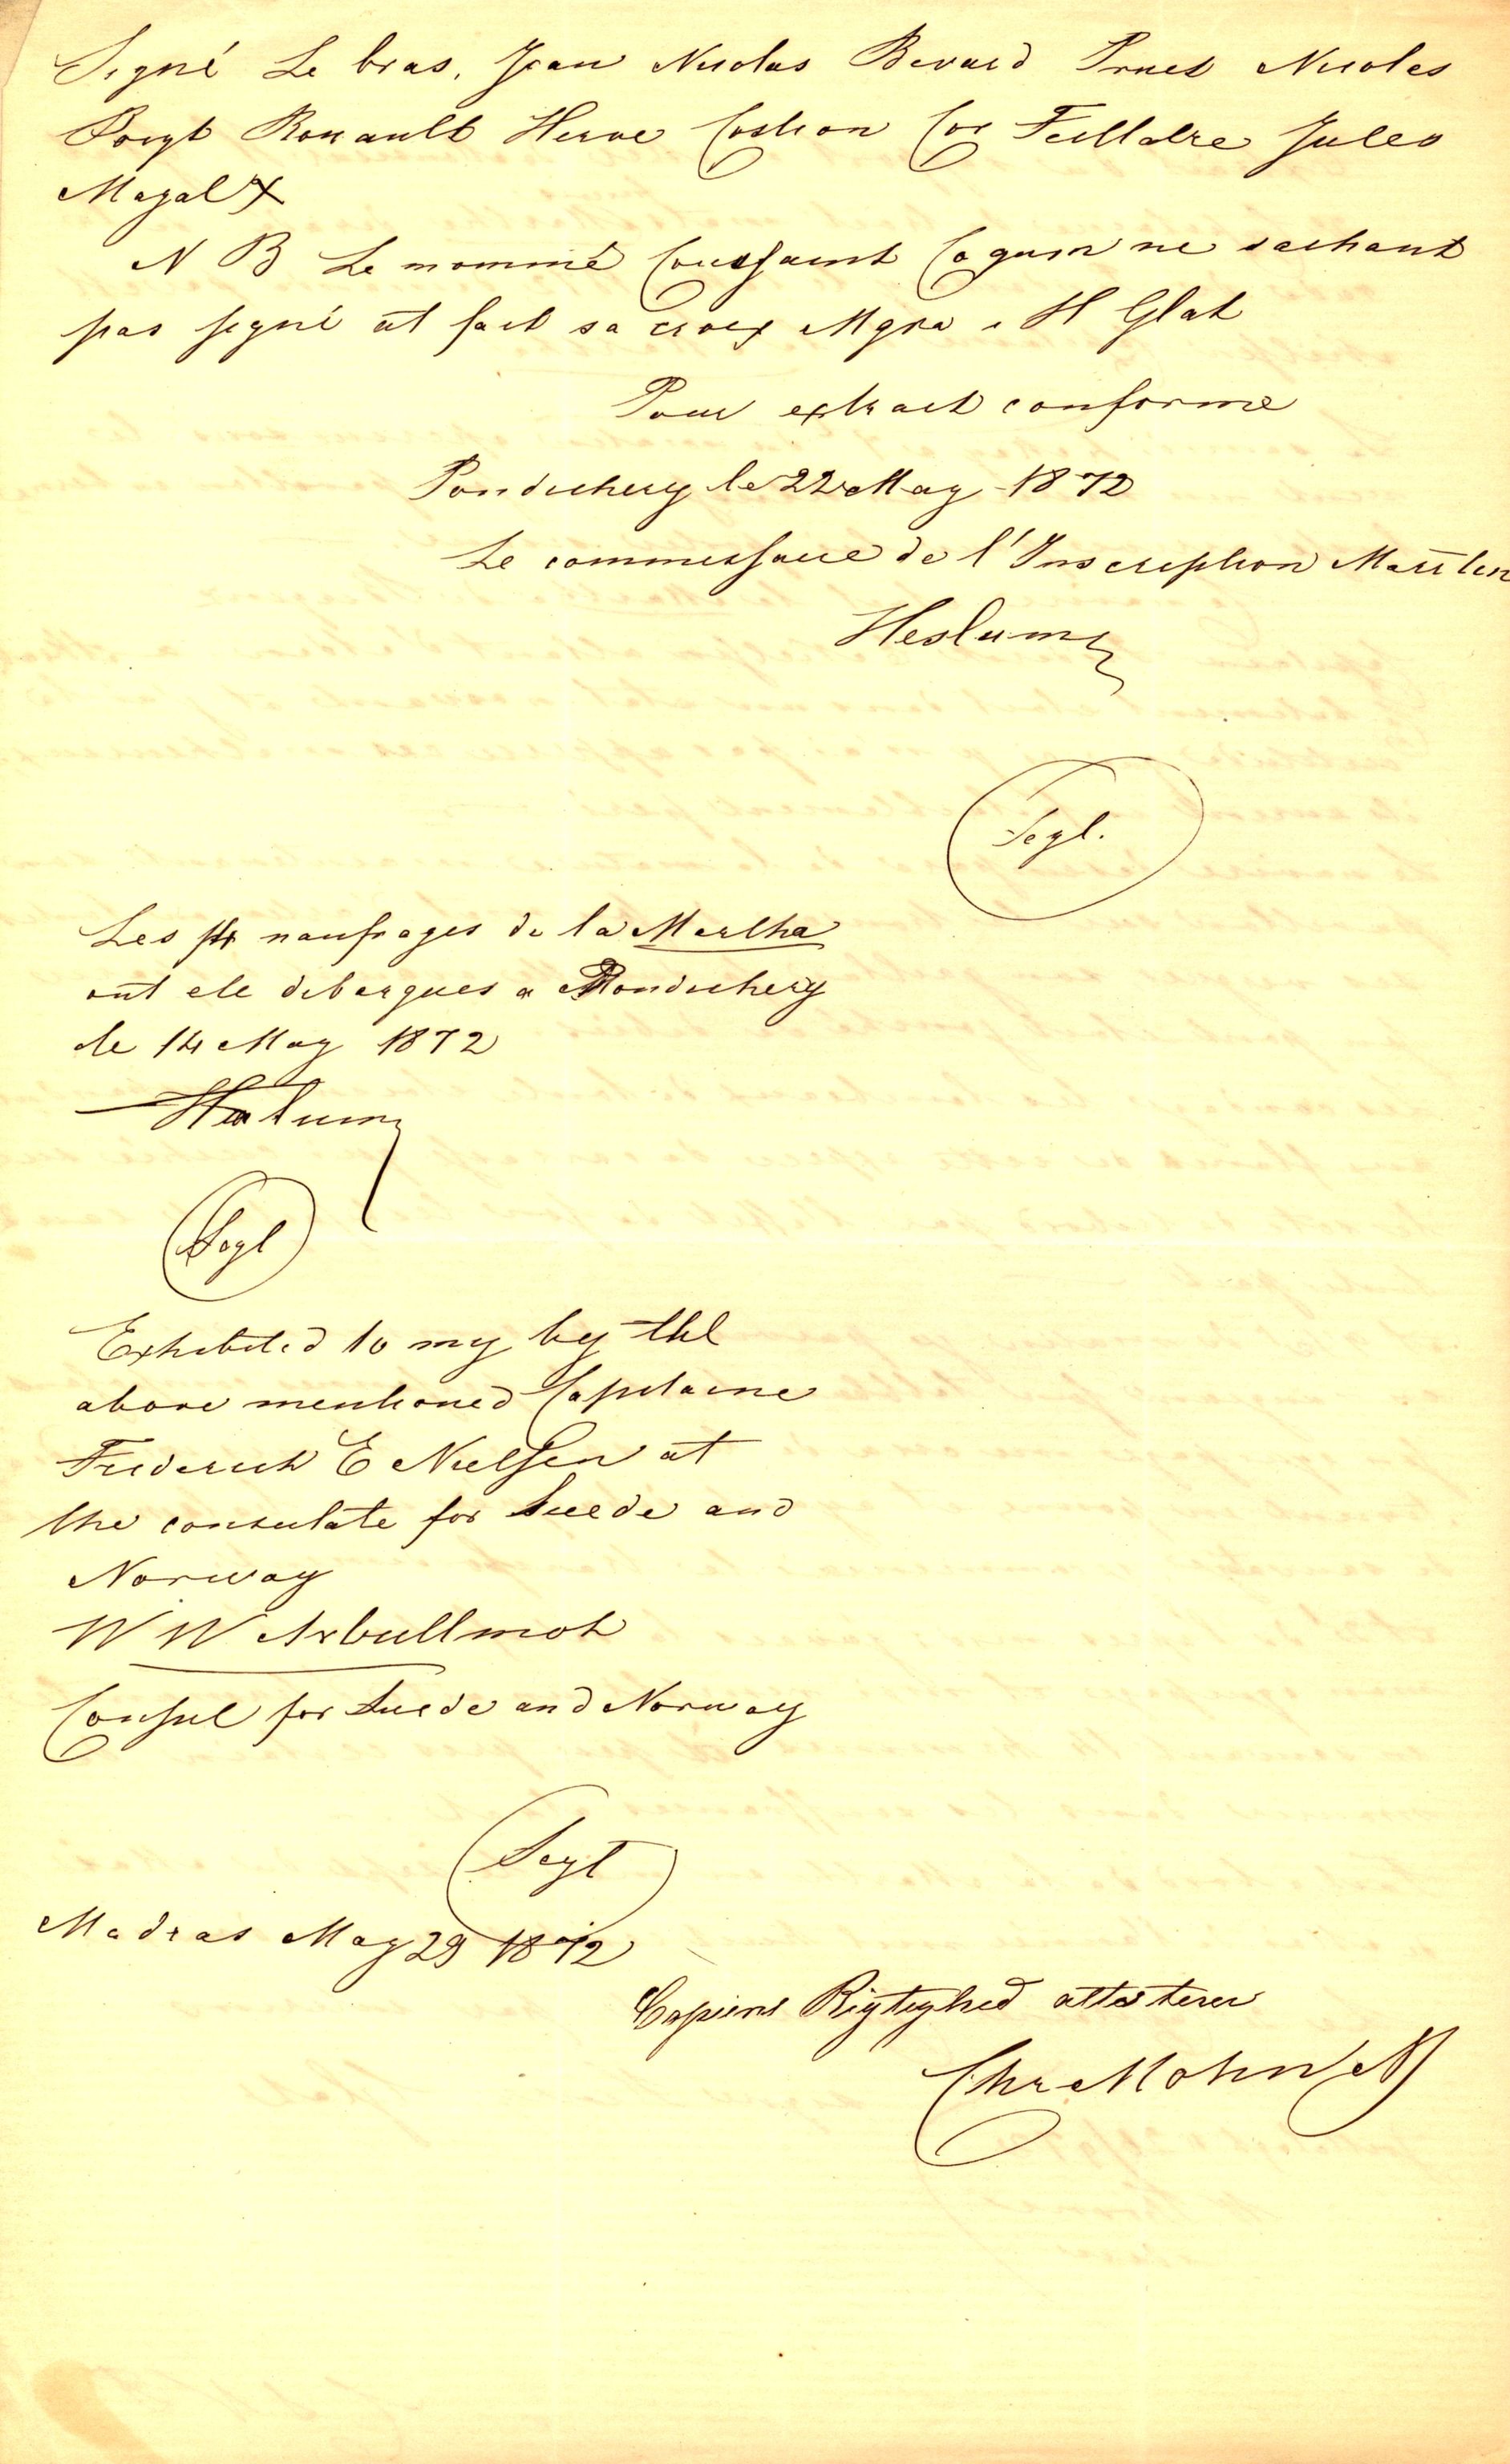 Signé Le bras, Jean Nicolas Bevard Pruet Nicoles
Poigt Rouault Herve Costion Cor Feillatre Jules
Magal X
N B Le nommé Coussaint Coguin ne sachant
pas signé at fait sa croix Mgra . H Glat
Pour extrait conforme
Pondichery le 22 May 1872
Le commissaire de l'Inscription
Heslum
Segl.
Les naufrages de la Martha
ont ete debarques a Pondichery
le 14 May 1872
Heslum
Segl
Exhibited to my by the
above mentioned Capitaine
Frederich E Nielsen at
the consulate for Suede and
Norway
W W Arbuthnot
Consul for Suede and Norway
Segl
Madras May 29 1872
Copiens Rigtighed attesterer
Chr Mohn